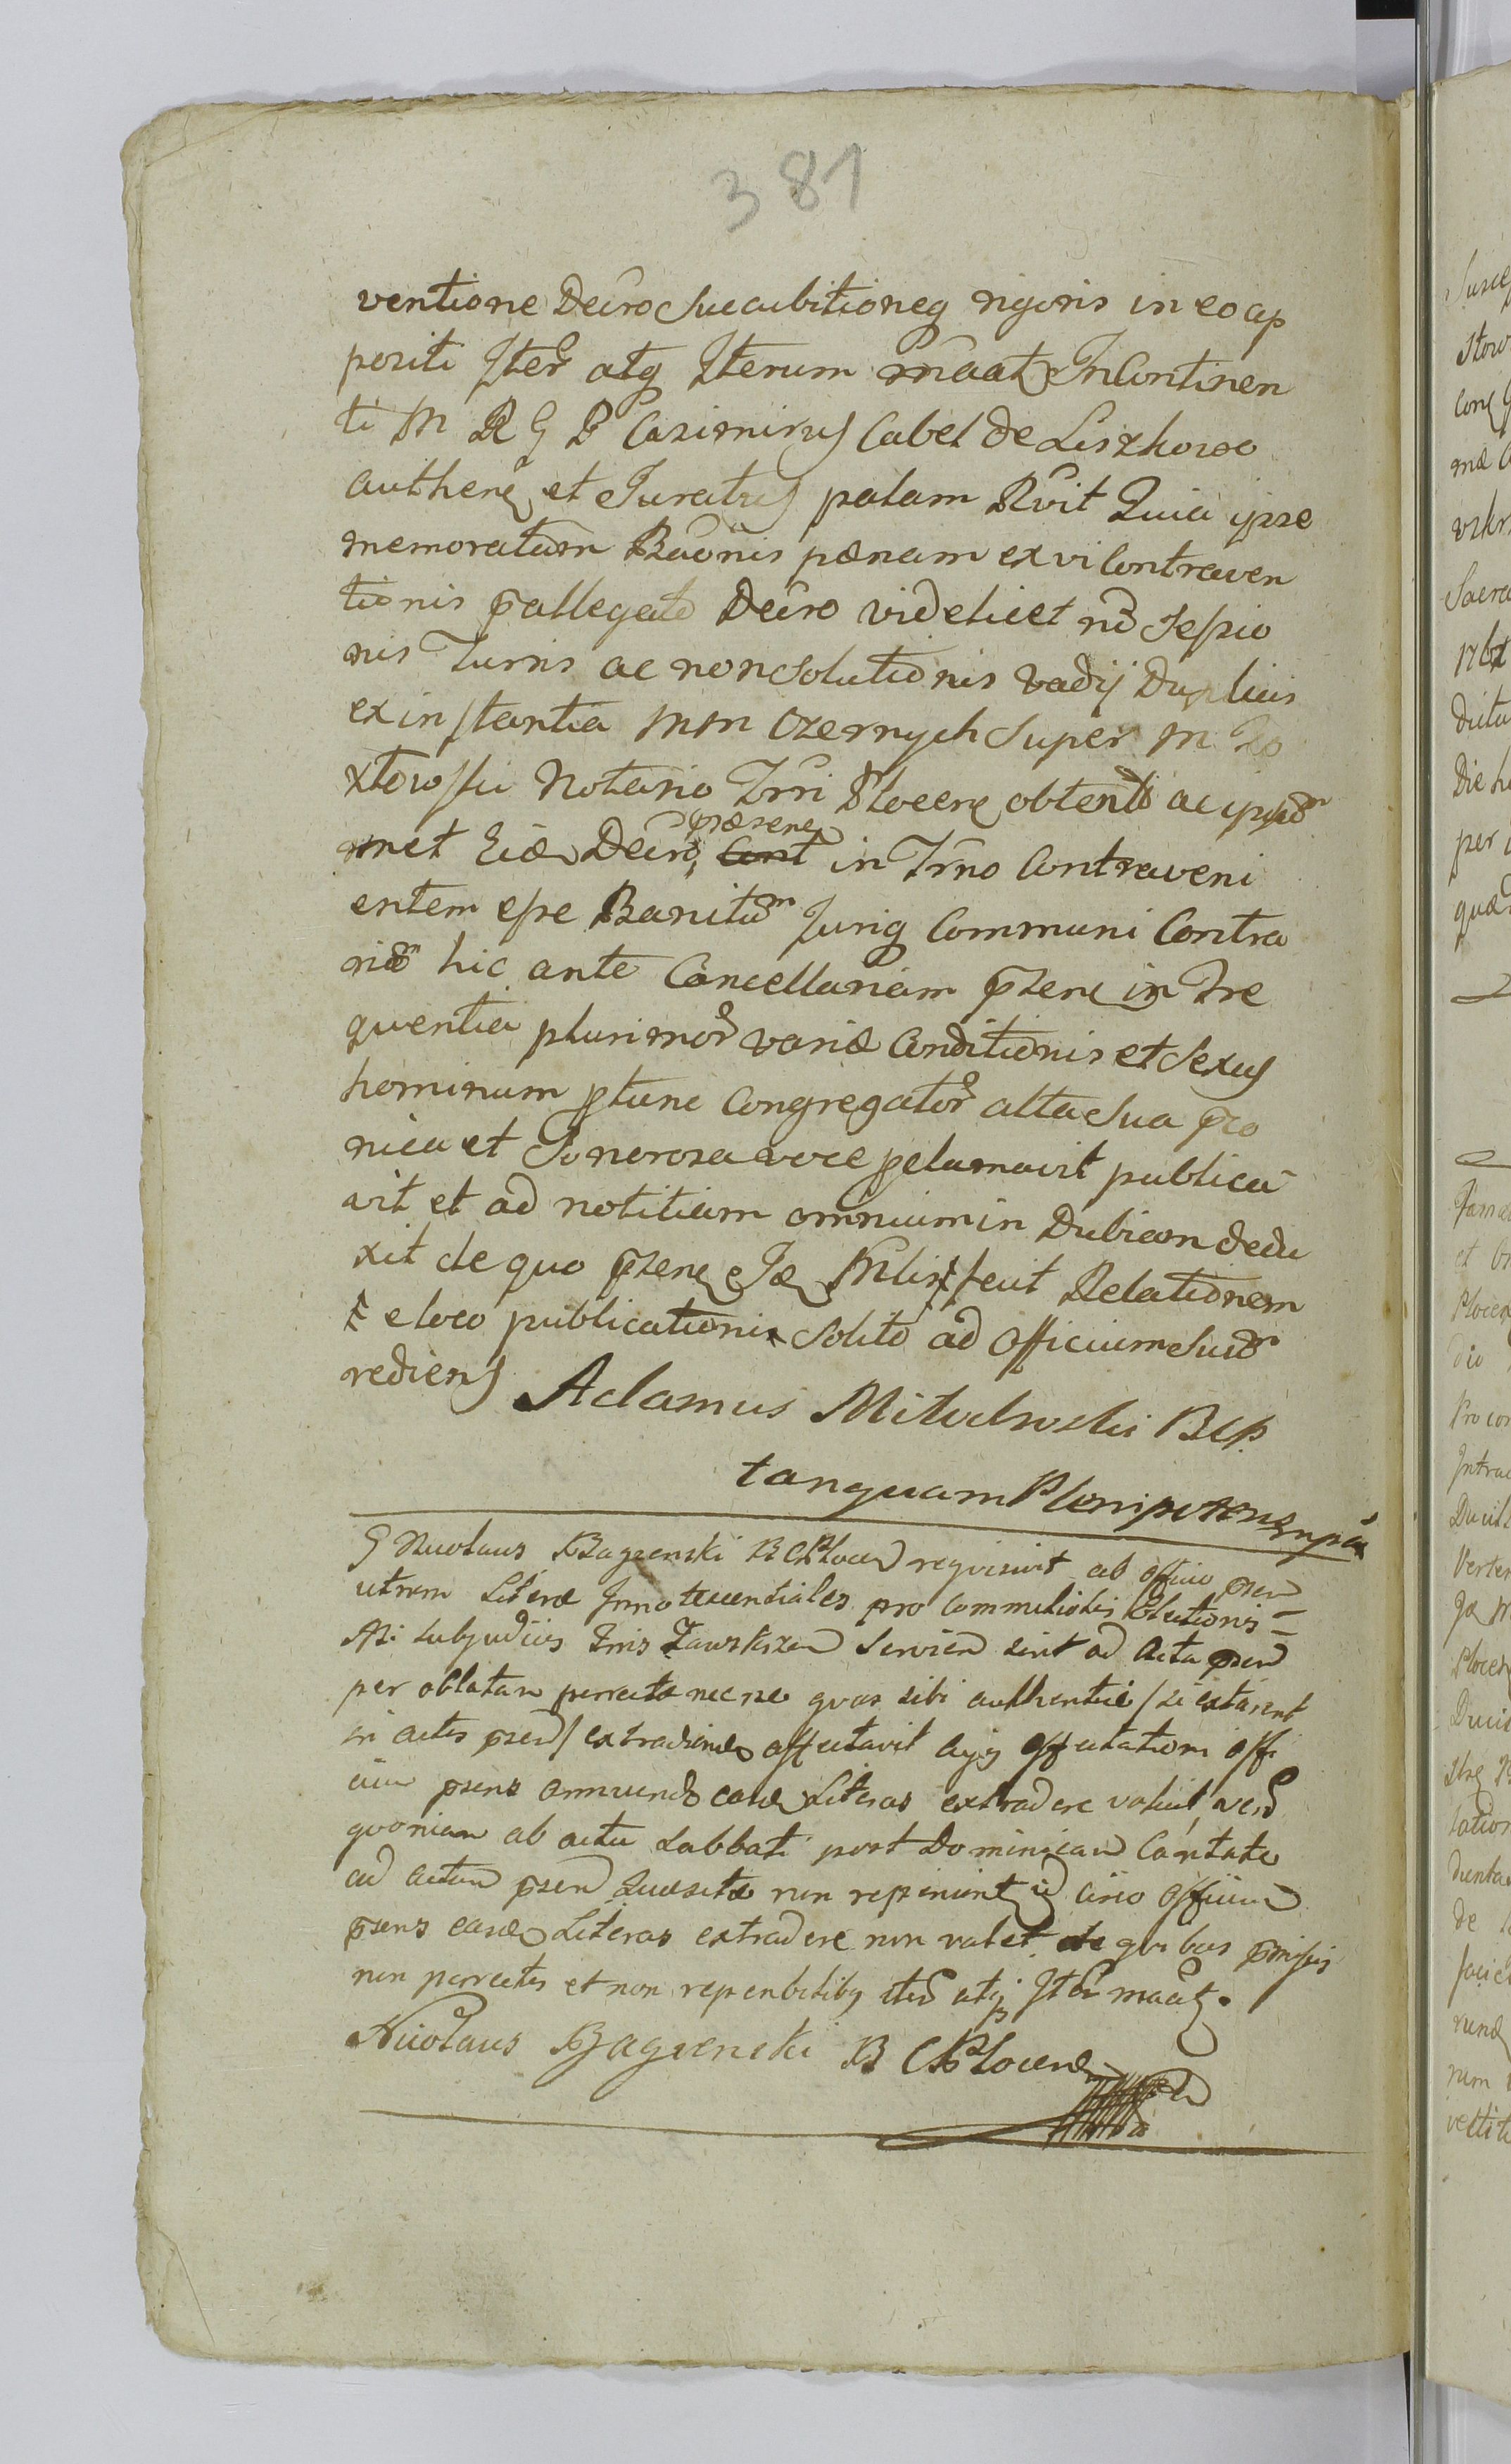 381
ventione Decro Succubitioneq rigoris in eo ap
positi Iter atq Iterum maat InContinen
ti M R G P Casimirus Cabel de Liszkowo
authene et Juratus palam Rvit Quia ipse
memoratum Baonis pænam ex vi Contraven
tionis pallegato Decro videlicet no Sessio
nis Turris ac non Solutionis vadij Duplicis
ex instantia MM Czernych Super M Zo
xtowski Notario Trri Plocen obtento ac ipsum
met Decro præsene in Trno Contraveni
entem esse Banitum Juriq Communi Contra
rium hic ante Cancellariam psene in Fre
quentia plurimor variæ Conditionis et Sexus
hominum ptunc Congregator alta Sua pro
nica et Sonorosa voce pclamavit publica
vit et ad notitiam omnium in Dubiam dedu
xit de quo psene fecit Relationem
e loco publicationis Solito ad Officium Suum
rediens Adamus BCP
tanquam Plenipotens
G Nicolaus Bagienski B C Plocen requisivit ab officio psen
utrum Literæ Innotescentiales pro Commitiolis Electionis
Subjudicis Trris Zawskrzen Servien sint ad Acta psen
per oblatam porrectæ necne quas sibi authentice / si extarent
in actis psen / extradiendas affectavit cujq affectationi offi
cium psens annuendo easd Literas extradere voluit, vero
quoniam ab actu Sabbati post Dominicam Cantate
ad actum psen quæsitæ non reperiunt id circo officium
psens easd Literas extradere non valet de quibus pmissis
non porrectis et non reperibilibq iter atq Iter maat.
Nicolaus Bagienski B C Plocen